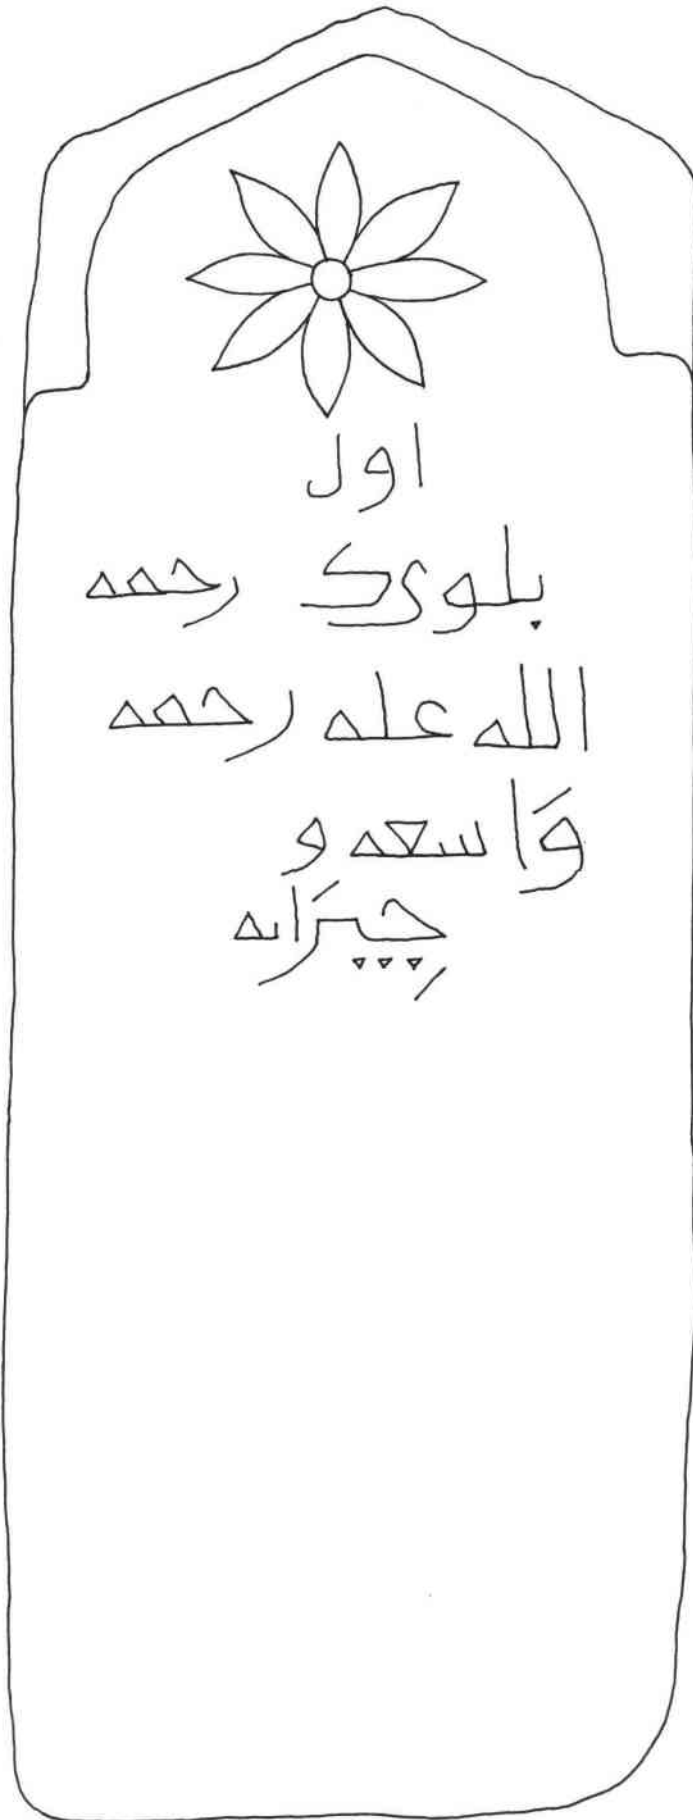 اول
بلوى ك رحمه
الله عله رحمه
وَاسعه و
جِيرَانه